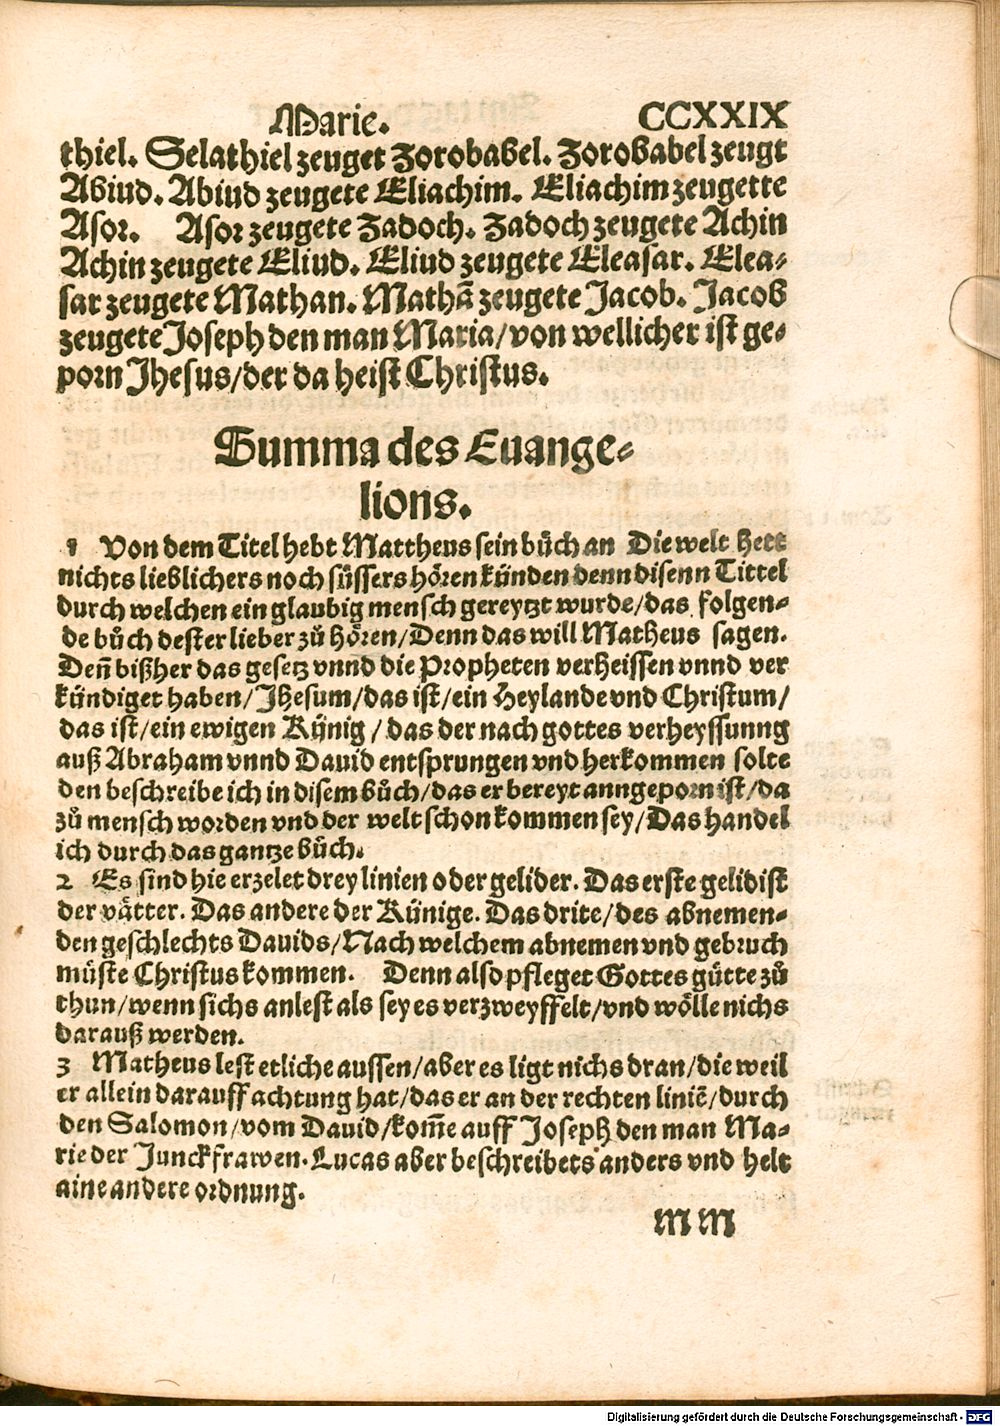 Marie. CCXXIX
thiel. Selathiel zeuget Zorobabel. Zorobabel zeugt
Abiud. Abiud zeugete Eliachim. Eliachim zeugette
Asor. Asor zeugete Zadoch. Zadoch zeugete Achin
Achin zeugete Eliud. Eliud zeugete Eleasar. Elea-
sar zeugete Mathan. Mathā zeugete Jacob. Jacob
zeugete Joseph den man Maria/von wellicher ist ge-
porn Jhesus/der da heist Christus.
Summa des Euange-
lions.
1 Von dem Titel hebt Mattheus sein bůch an Die welt hett
nichts lieblichers noch süssers hören künden denn disenn Tittel
durch welchen ein glaubig mensch gereytzt wurde/das folgen-
de bůch dester lieber zů hören/Denn das will Matheus sagen.
Den̄ bißher das gesetz vnnd die Propheten verheissen vnnd ver
kündiget haben/Jhesum/das ist/ein Heylande vnd Christum/
das ist/ein ewigen Künig/das der nach gottes verheyssunng
auß Abraham vnnd Dauid entsprungen vnd herkommen solte
den beschreibe ich in disem bůch/das er bereyt anngeporn ist/da
zů mensch worden vnd der welt schon kommen sey/Das handel
ich durch das gantze bůch.
2 Es sind hie erzelet drey linien oder gelider. Das erste gelid ist
der vätter. Das andere der Künige. Das drite/des abnemen-
den geschlechts Dauids/Nach welchem abnemen vnd gebruch
müste Christus kommen. Denn also pfleget Gottes gütte zů
thun/wenn sichs anlest als sey es verzweyffelt/vnd wölle nichs
darauß werden.
3 Matheus lest etliche aussen/aber es ligt nichs dran/die weil
er allein darauff achtung hat/das er an der rechten liniē/durch
den Salomon/vom Dauid/kom̄e auff Joseph den man Ma-
rie der Junckfrawen. Lucas aber beschreibets anders vnd helt
aine andere ordnung.
m m
Digitalisierung gefördert durch die Deutsche Forschungsgemeinschaft - DFG